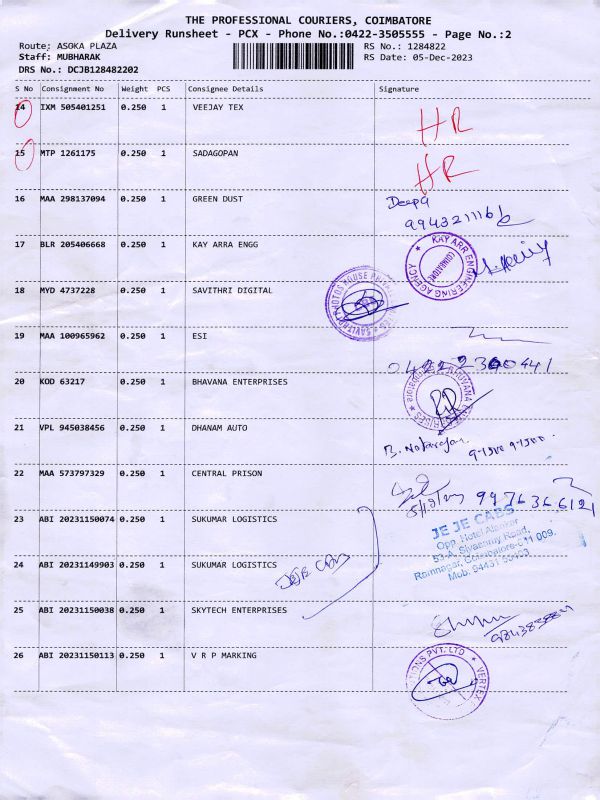 THE PROFESSIONAL COURIERS, COIMBATORE
Delivery Runsheet - PCX - Phone No.:0422-3505555 - Page No.:2
Route: ASOKA PLAZA
RS No.: 1284822
Staff: MUBHARAK
RS Date: 05-Dec-2023
DRS No.: DCJB128482202
S No Consignment No Weight PCS Consignee Details Signature
14 IXM 505401251 0.250 1 VEEJAY TEX
HR
15 MTP 1261175 0.250 1 SADAGOPAN
HR
16 MAA 298137094 0.250 1 GREEN DUST
Deepa
9943211166
17 BLR 205406668 0.250 1 KAY ARRA ENGG
KAY ARR ENGINEERING AGENCY
COIMBATORE
18 MYD 4737228 0.250 1 SAVITHRI DIGITAL
19 MAA 100965962 0.250 1 ESI
04222300441
20 KOD 63217 0.250 1 BHAVANA ENTERPRISES
21 VPL 945038456 0.250 1 DHANAM AUTO
B. Natarajan
22 MAA 573797329 0.250 1 CENTRAL PRISON
9976366121
23 ABI 20231150074 0.250 1 SUKUMAR LOGISTICS
JE JE CABS
Opp. Hotel Alankar
53-A, Sivasamy Road,
Ramnagar, Coimbatore-641 009.
24 ABI 20231149903 0.250 1 SUKUMAR LOGISTICS
JEJE CABS
25 ABI 20231150038 0.250 1 SKYTECH ENTERPRISES
26 ABI 20231150113 0.250 1 V R P MARKING